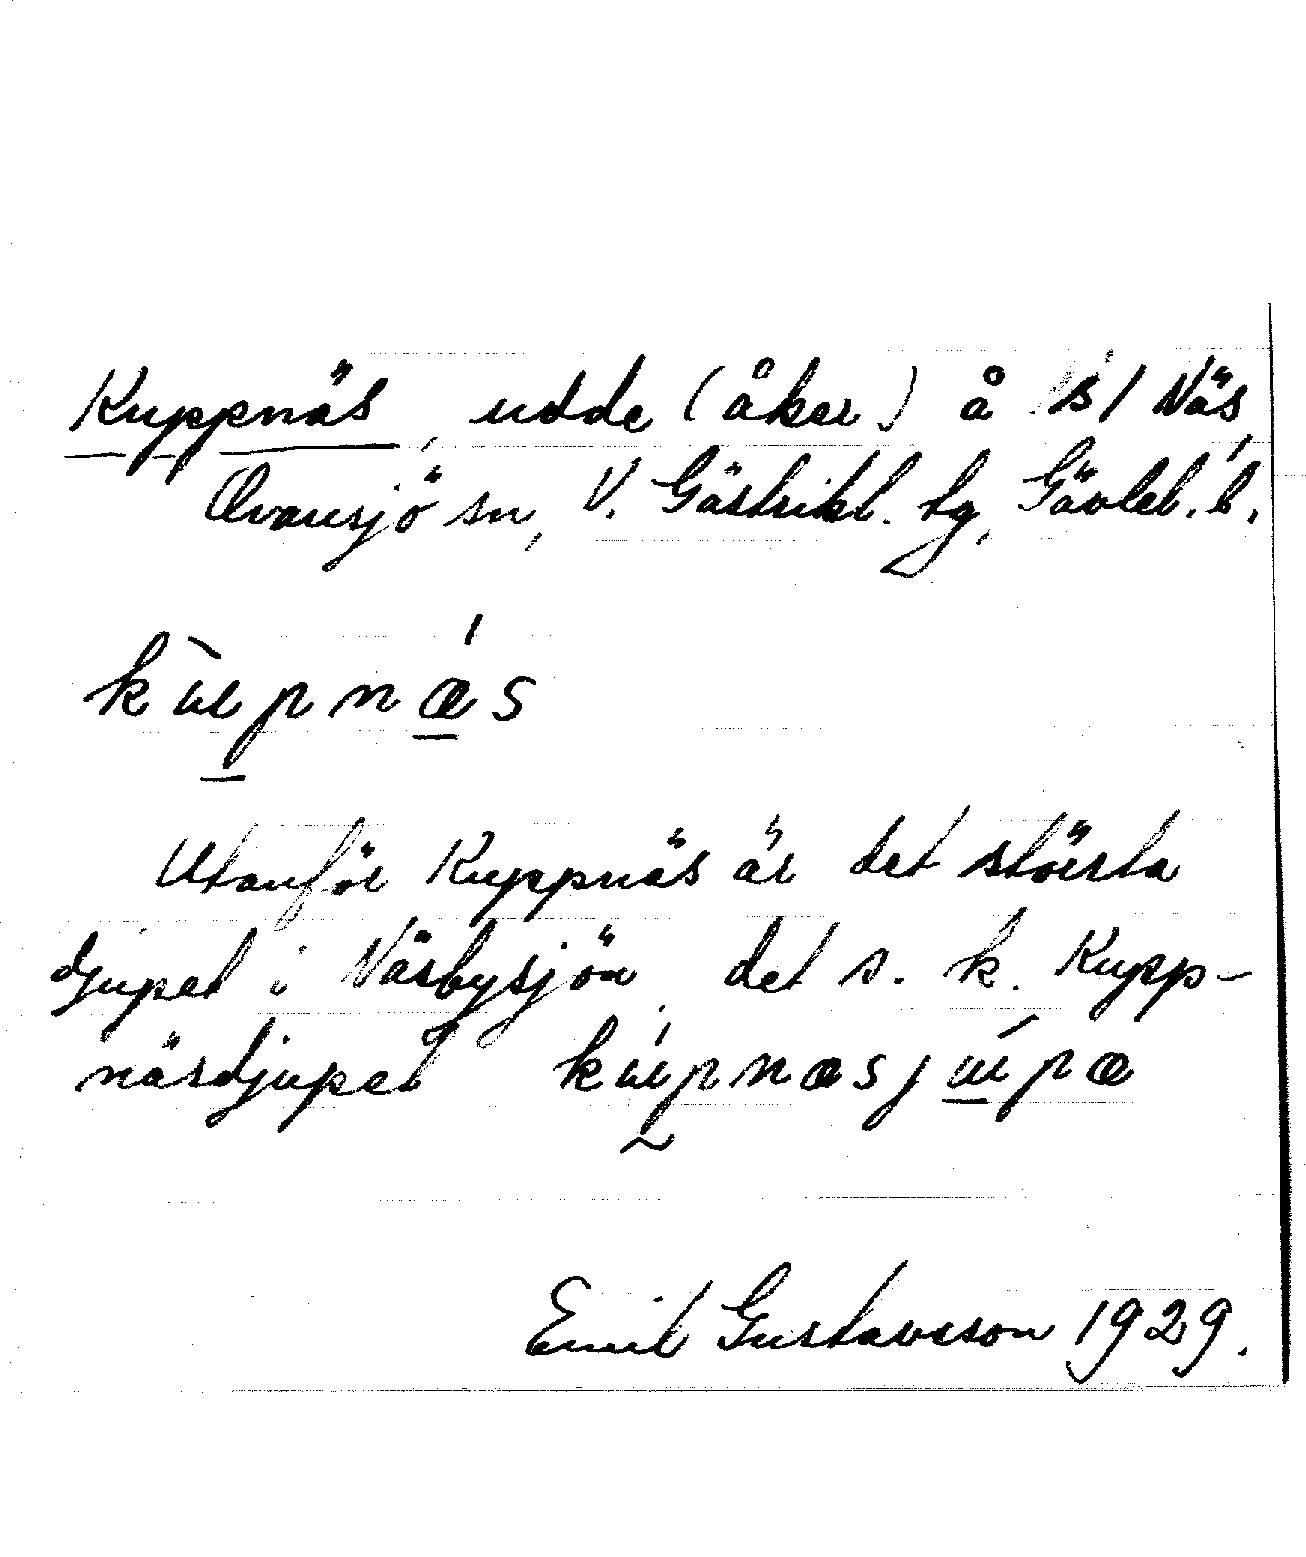 Kuppnäs, udde (åker) å 1/s 1 Näs,
Ovansjö sn, V. Gästrikl. tg, Gävleb. l.
kùpnǽs
Utanför Kuppnäs är det största
djupet i Näsbysjön, det s. k. Kupp-
näsdjupet kúpnæsjúpæ
Emil Gustavsson 1929.